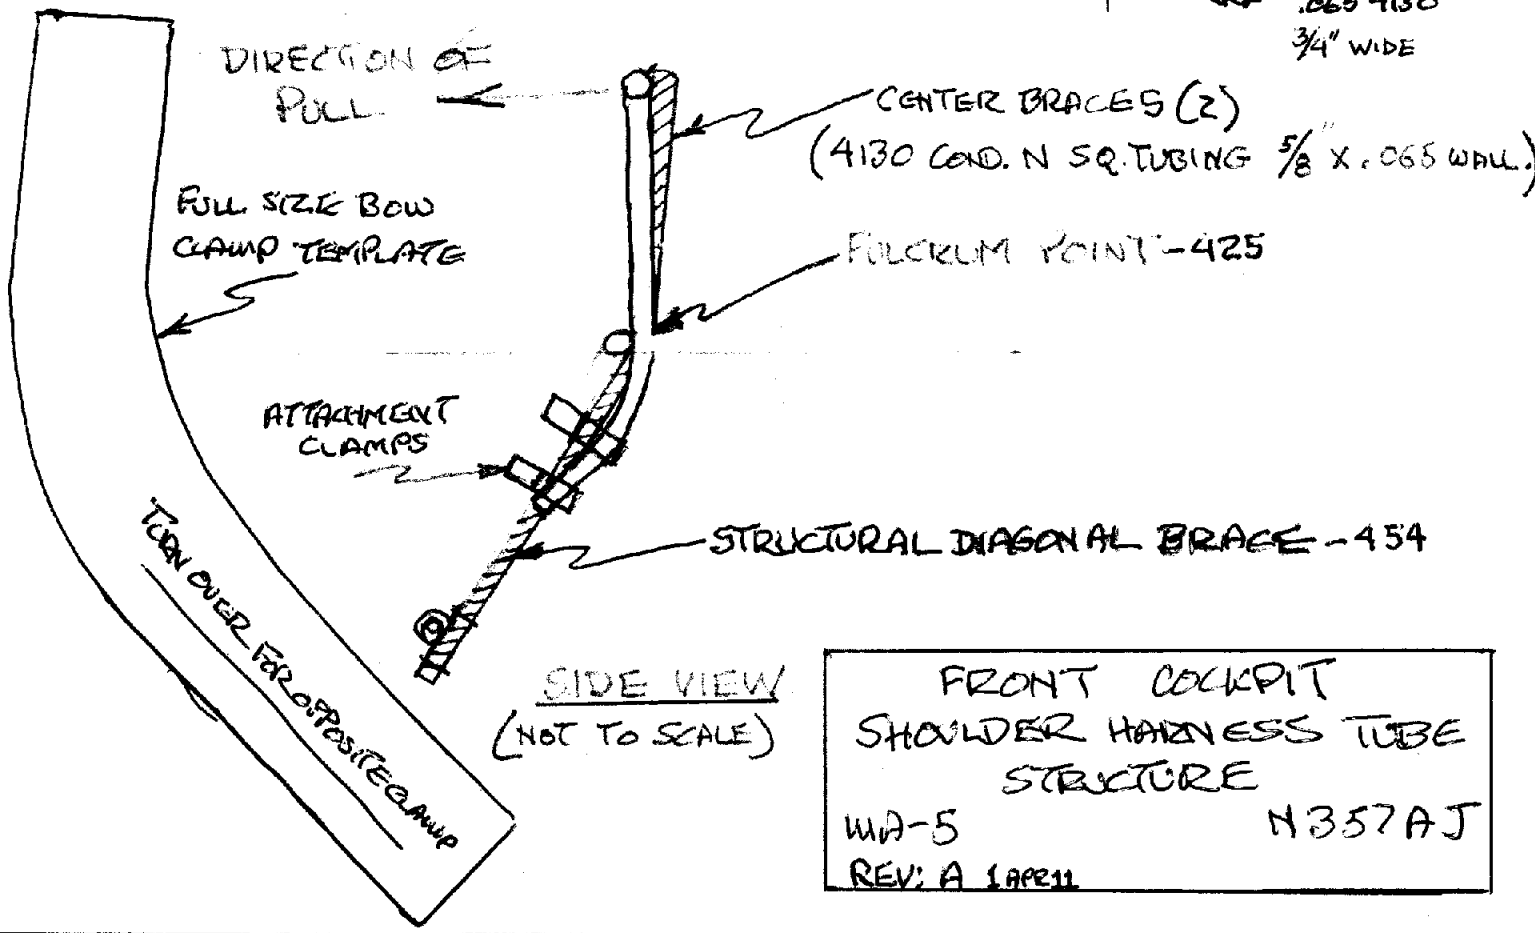 .065 4130
3/4" WIDE
DIRECTION OF
PULL
CENTER BRACES (2)
(4130 COND. N SQ. TUBING 5/8" X .065 WALL.)
FULL SIZE BOW
CLAMP TEMPLATE
FULCRUM POINT-425
ATTACHMENT
CLAMPS
STRUCTURAL DIAGONAL BRACE-454
TURN OVER FOR OPPOSITE CLAMP
SIDE VIEW
(NOT TO SCALE)
FRONT COCKPIT
SHOULDER HARNESS TUBE
STRUCTURE
WA-5 N357AJ
REV: A 1APR11